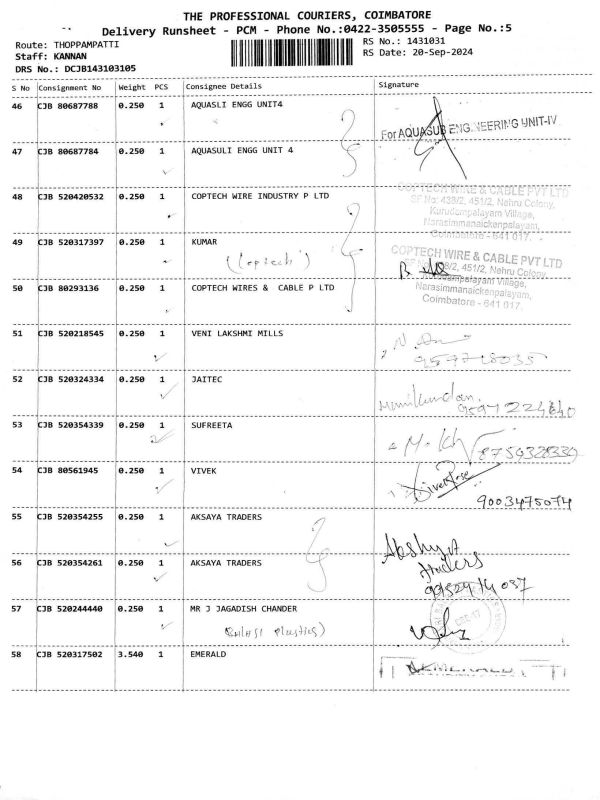 THE PROFESSIONAL COURIERS, COIMBATORE
Delivery Runsheet - PCM - Phone No.:0422-3505555 - Page No.:5
Route: THOPPAMPATTI
RS No.: 1431031
Staff: KANNAN
RS Date: 20-Sep-2024
DRS No.: DCJB143103105
S No Consignment No Weight PCS Consignee Details Signature
46 CJB 80687788 0.250 1 AQUASLI ENGG UNIT4
For AQUASUB ENGINEERING UNIT-IV
47 CJB 80687784 0.250 1 AQUASULI ENGG UNIT 4
48 CJB 520420532 0.250 1 COPTECH WIRE INDUSTRY P LTD
COPTECH WIRE & CABLE PVT LTD
SF No: 438/2, 451/2, Nehru Colony,
Kurudampalayam Village,
Narasimmanaickenpalayam,
Coimbatore - 641 017.
49 CJB 520317397 0.250 1 KUMAR
(Coptech)
COPTECH WIRE & CABLE PVT LTD
SF No: 438/2, 451/2, Nehru Colony,
Village,
Narasimmanaickenpalayam,
Coimbatore - 641 017.
50 CJB 80293136 0.250 1 COPTECH WIRES & CABLE P LTD
51 CJB 520218545 0.250 1 VENI LAKSHMI MILLS
9597218035
52 CJB 520324334 0.250 1 JAITEC
Manikandan.
9597224640
53 CJB 520354339 0.250 1 SUFREETA
54 CJB 80561945 0.250 1 VIVEK
9003475074
55 CJB 520354255 0.250 1 AKSAYA TRADERS
56 CJB 520354261 0.250 1 AKSAYA TRADERS
Akshya
traders
9952974037
57 CJB 520244440 0.250 1 MR J JAGADISH CHANDER
(Balaji Plastics)
58 CJB 520317502 3.540 1 EMERALD